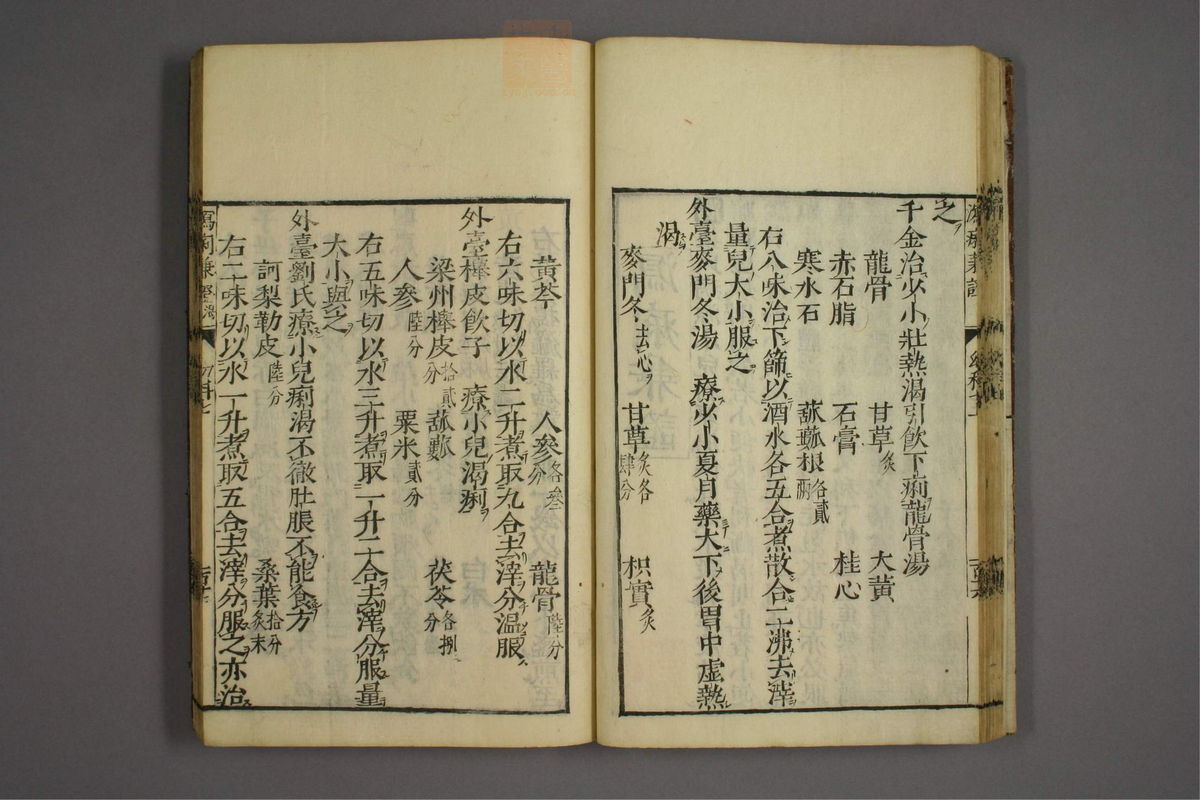 之
千金治少小壯熱渴引飲下痢龍骨湯
龍骨 甘草炙 大黃
赤石脂 石膏 桂心
寒水石 蓏蔌根各貳兩
右八味治下篩以酒水各五合煮散合二沸去滓
量兒大小服之
外臺麥門冬湯 療少小夏月藥大下後胃中虛熱
渴
麥門冬去心 甘草炙各肆分 枳實炙
黃芩 人參各叄分 龍骨陸分
右六味切以水二升煮取九合去滓分溫服
外臺櫸皮飲子 療小兒渴痢
梁州櫸皮拾貳分 蓏蔌 茯苓各捌分
人參陸分 粟米貳分
右五味切以水三升煮取一升二合去滓分服量
大小與之
外臺劉氏療小兒痢渴不徹肚脹不能食方
訶梨勒皮陸分 桑葉拾分炙末
右二味切以水一升煮取五合去滓分服之亦治